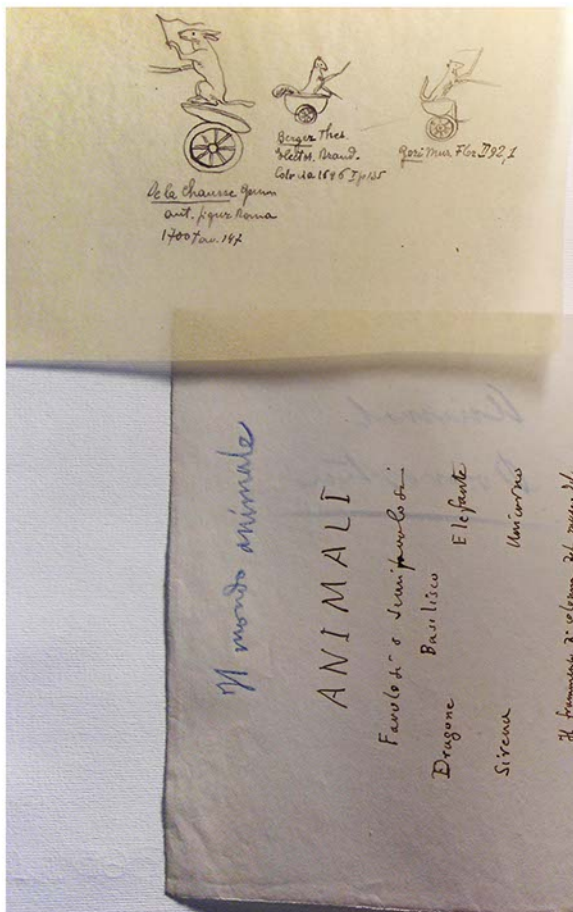 De la Chausse Gemm
ant. figur Roma
1700 Tav. 147
Berger Thes.
Elector. Brand.
Colonia 1696 I p 135
Gori Mus Flor. II 92, 1
Il mondo animale
ANIMALI
Favolosi o semifavolosi
Dragone Basilisco Elefante
Sirena Unicorno
Il frammento di